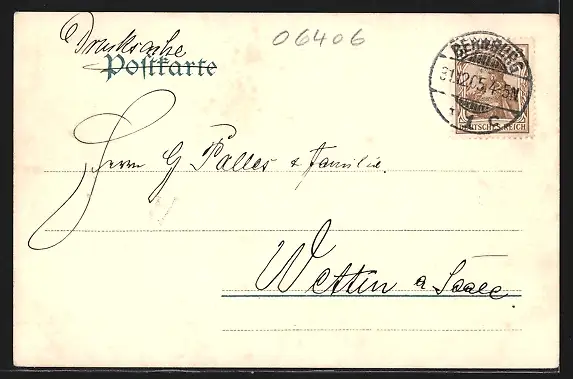 Drucksache
06406
Postkarte
BERNBURG
31.12.05.4-5N
DEUTSCHES REICH
Herrn G Palles & Familie.
Wettin a Saale.